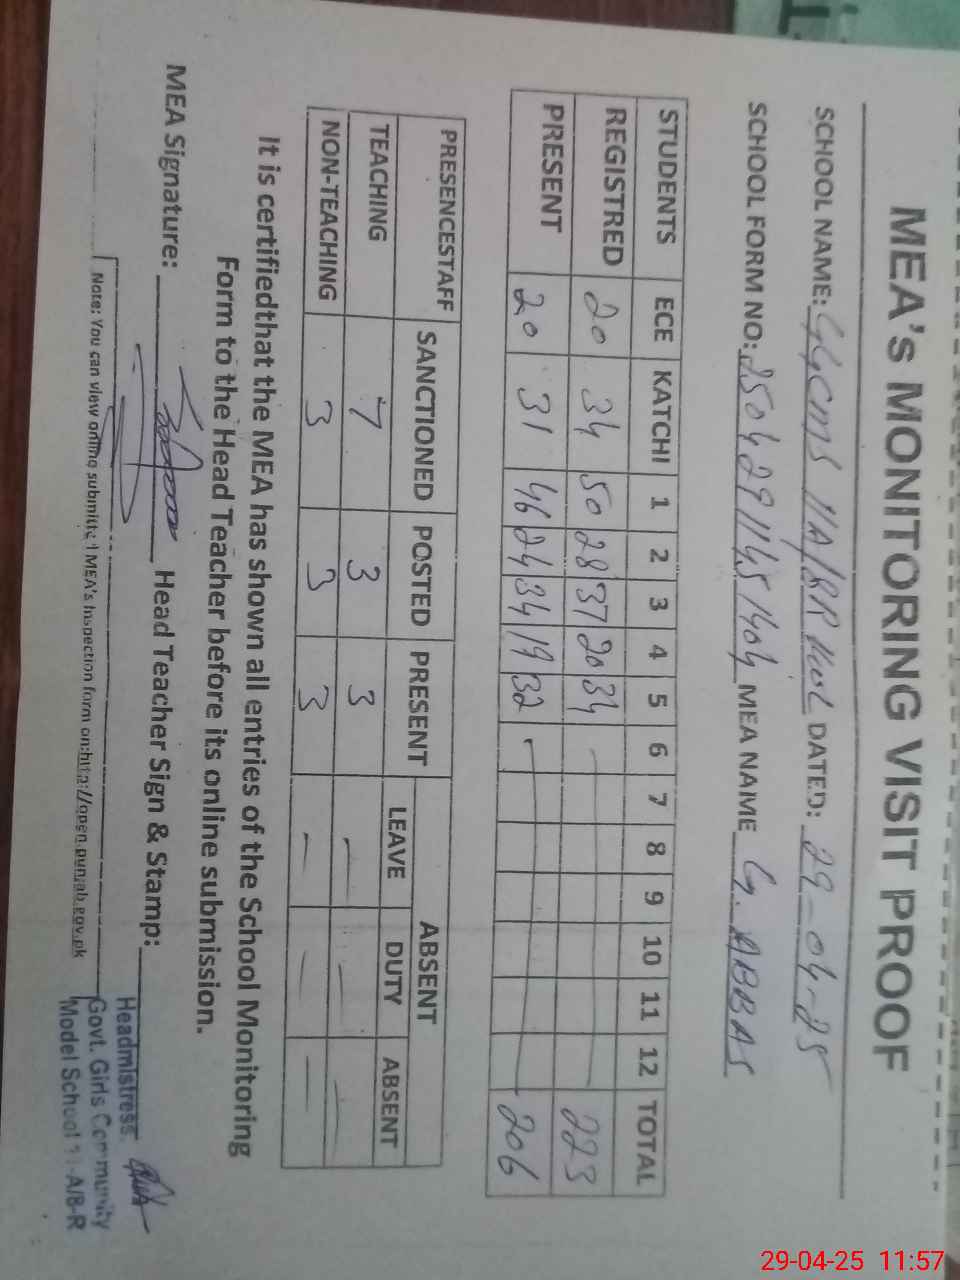 MEA's MONITORING VISIT PROOF
SCHOOL NAME: GGCMS 11A/BR KWL DATED: 29-04-25
SCHOOL FORM NO: 25042911451404 MEA NAME G. ABBAS
STUDENTS ECE KATCHI 1 2 3 4 5 6 7 8 9 10 11 12 TOTAL
REGISTRED 20 34 50 28 37 20 34 223
PRESENT 20 31 46 24 34 19 32 206
PRESENCESTAFF SANCTIONED POSTED PRESENT ABSENT
LEAVE DUTY ABSENT
TEACHING 7 3 3 — — —
NON-TEACHING 3 3 3 — — —
It is certifiedthat the MEA has shown all entries of the School Monitoring
Form to the Head Teacher before its online submission.
MEA Signature: Head Teacher Sign & Stamp:
Headmistress
Govt. Girls Community
Model School 11-A/8-R
Note: You can view online submitted MEA's Inspection form on:http://open.punjab.gov.pk
29-04-25 11:57